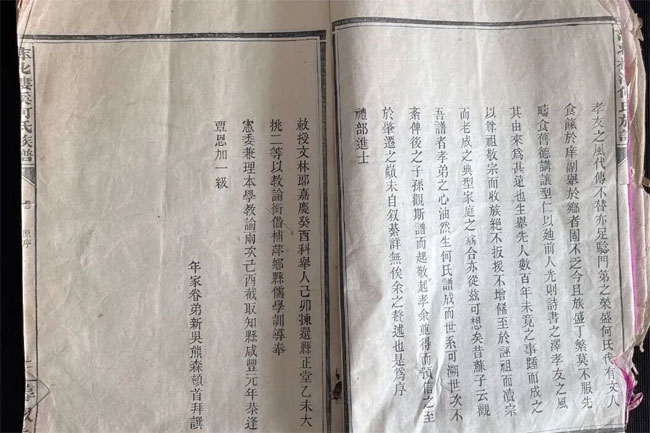 孝友之風代傳不替亦足騐門第之榮盛何氏代有文人
食餼於庠副舉於鄉者固不乏今且族盛丁繁莫不服先
疇食舊德講讓型仁以趨前人光則詩書之澤孝友之風
其由來爲甚遠也生舉先人數百年未竟之事踵而成之
以尊祖敬宗而收族絕不扳援不增至於誣祖而瀆宗
而老成之典型家庭之翕合亦從兹可想矣昔蘇子云觀
吾譜者孝弟之心油然生何氏譜成而世系可溯世次不
紊俾後之子孫觀斯譜而起敬起孝余竊得而預信之至
於肇遷之巔末自叙綦詳無俟余之贅述也是爲序
禮部進士
敕授文林郎嘉慶癸酉科舉人己卯揀選縣正堂乙未大
挑二等以教諭銜借補萍鄉縣儒學訓導奉
憲委兼理本學教諭兩次己酉截取知縣咸豐元年恭逢
覃恩加一級
年家眷弟新吳熊森頓首拜譔
北樓溪何氏族譜